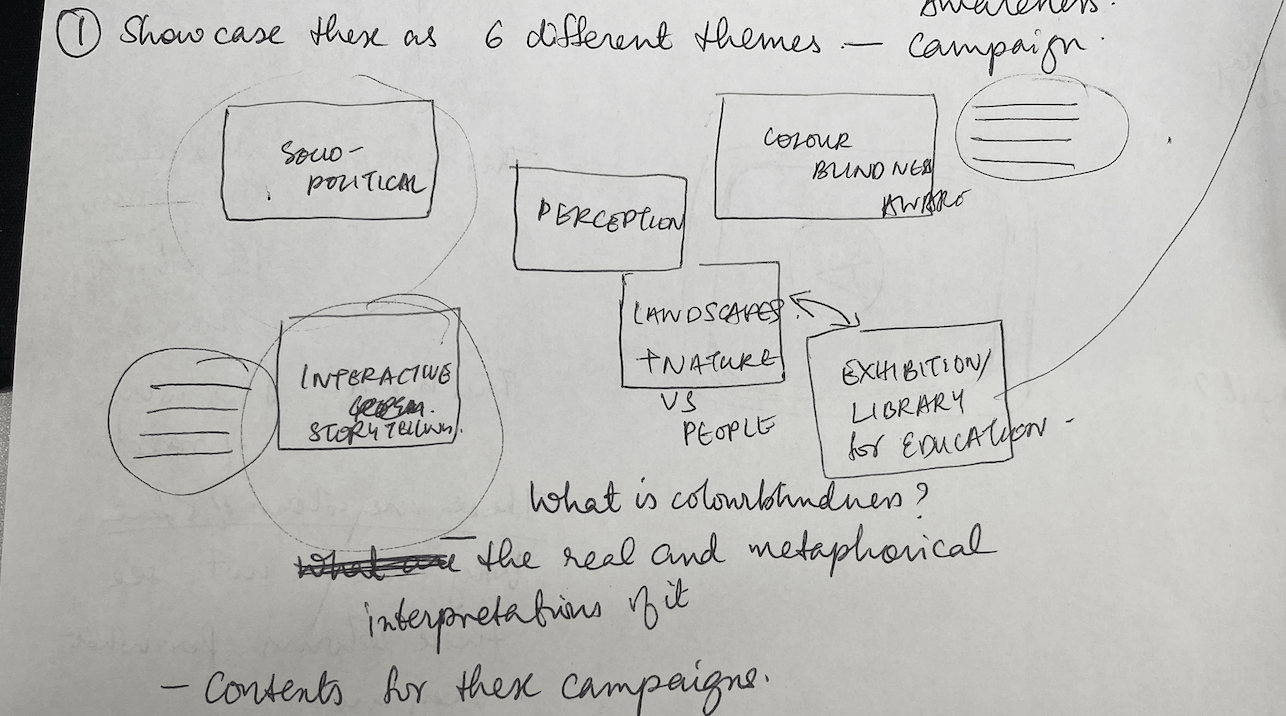 Awareness.
① Showcase these as 6 different themes — campaign.
SOCIO-
POLITICAL
PERCEPTION
COLOUR
BLINDNESS
AWARE
INTERACTIVE
STORYTELLING.
LANDSCAPES
+ NATURE
VS
PEOPLE
EXHIBITION/
LIBRARY
for EDUCATION -
What is colourblindness?
What are the real and metaphorical
interpretations of it
- Contents for these campaigns.